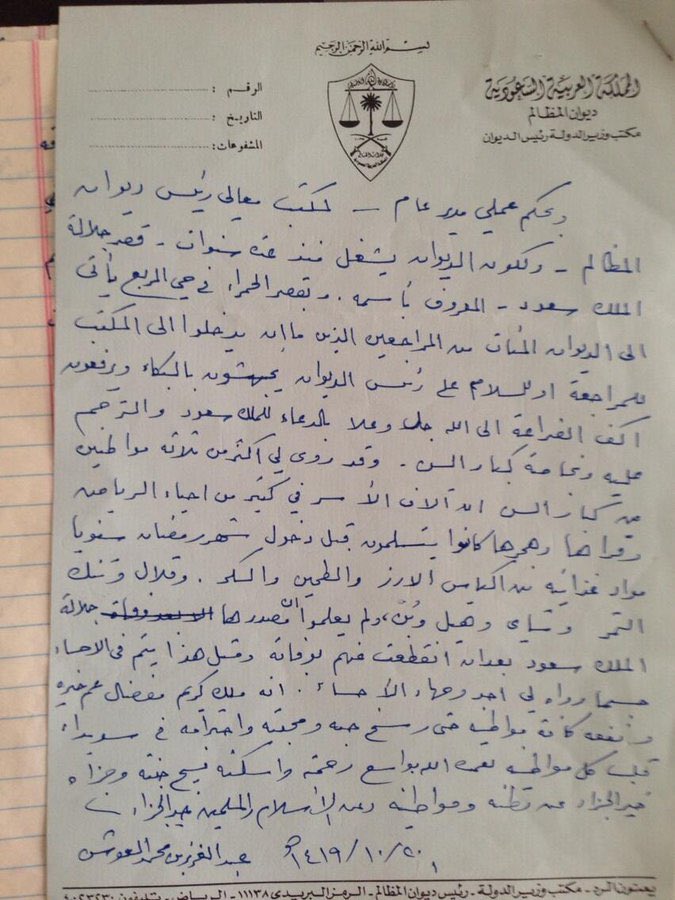 بسم الله الرحمن الرحيم
المملكة العربية السعودية
ديوان المظالم
مكتب وزير الدولة رئيس الديوان
الرقم :
التاريخ :
المشفوعات :
وبحكم عملي مدير عام - لمكتب معالي رئيس ديوان
المظالم - ولكون الديوان يشغل منذ عدة سنوات - قصر جلالة
الملك سعود - المعروف بأسمه . وبقصر الحمراء في حي المربع يأتي
الى الديوان المئات من المراجعين الذين ما إن يدخلوا الى المكتب
للمراجعة او للسلام على رئيس الديوان يجهشون بالبكاء ويرفعون
اكف الضراعة الى الله جل وعلا بالدعاء للملك سعود والترحم
عليه وبخاصة كبار السن . وقد روى لي اكثر من ثلاثة مواطنين
من كبار السن ان آلاف الأسر في كثير من احياء الرياض
وقراها وهجرها كانوا يتسلمون قبل دخول شهر رمضان سنويا
مواد غذائية من اكياس الارز والطحين والسكر . وقلال وتنك
التمر وشاي وهيل وبن، ولم يعلموا ان مصدرها جلالة
الملك سعود بعد ان انقطعت عنهم بوفاته وقبل هذا يتم في الاحساء
حسبما رواه لي احد وجهاء الأحساء . انه ملك كريم مفضال عم خيره
ونفعه كافة مواطنيه حتى رسخ حبه ومحبته واحترامه في سويداء
قلب كل مواطن تغمده الله بواسع رحمته واسكنه فسيح جنته وجزاه
خير الجزاء عن وطنه ومواطنيه وعن الإسلام والمسلمين خير الجزاء
عبدالعزيز بن محمد العوشن
١٤١٩/١٠/٢٠هـ
يعنون الرد - مكتب وزير الدولة - رئيس ديوان المظالم - الرمز البريدي ١١١٣٨ - الرياض -